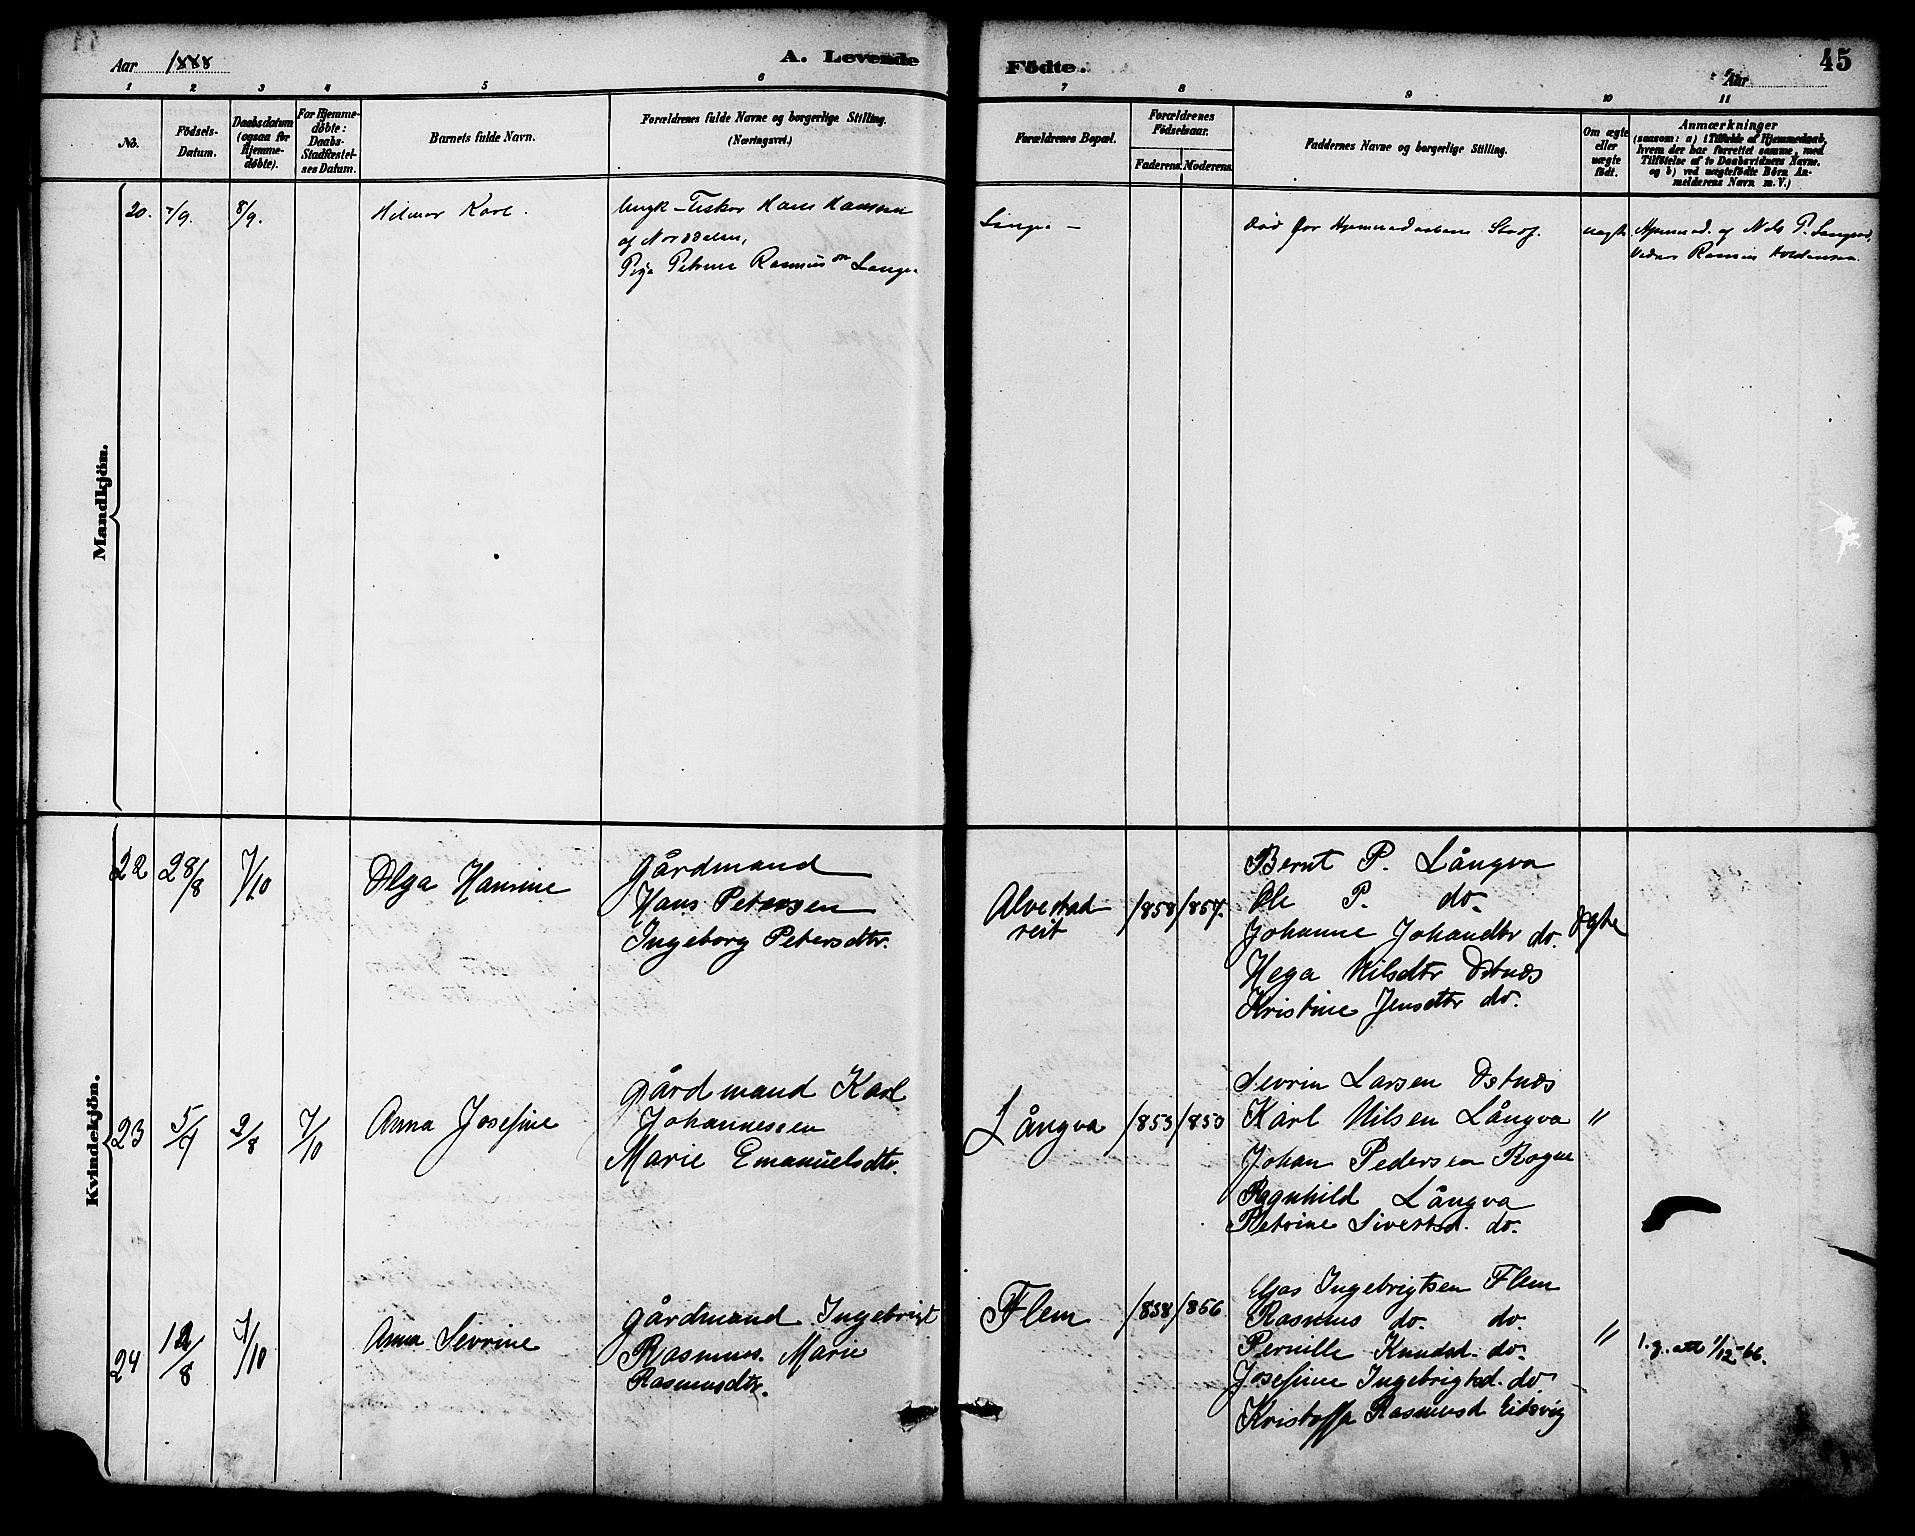 Aar 1888
A. Levende Födte.
Aar
45
1 2 3 4 5 6 7 8 9 10 11
No.
Födsels-
Datum.
Daabsdatum
(ogsaa for
Hjemme-
döbte).
For Hjemme-
döbte:
Daabs-
Stadfæstel-
ses Datum.
Barnets fulde Navn.
Forældrenes fulde Navne og borgerlige Stilling.
(Næringsvei.)
Forældrenes Bopæl.
Forældrenes
Födselsaar.
Faderens. Moderens.
Faddernes Navne og borgerlige Stilling.
Om ægte
eller
uægte
födt.
Anmærkninger
(saasom: a) i Tilfælde af Hjemmedaab,
hvem der har forrettet samme, med
Tilföielse af to Daabsvidners Navne.
og b) ved uægtefödte Börn An-
melderens Navn m. V.)
Mandkjön.
20. 7/9. 8/9. Hilmar Karl.
Ungk. Fisker Hans Hansen
af Norddalen,
Pige Petrine Rasmus
död før
uægte
Hjemmed. af Nils P.
Vidner Rasmus
Kvindekjön.
22 28/8 7/10 Olga Hansine
Gårdmand
Hans Petersen
Ingeborg Petersdtr.
Alvestad
reit
1858 1857.
Bernt P. Långva
Ole P. do.
Johanne Johandtr do.
Hega Nilsdtr Östnæs
Kristine Jensdtr do.
Ægte
23 5/7 2/8 7/10 Anna Josefine
Gårdmand Karl
Johannessen
Marie Emanuelsdtr.
Långva
1853 1850
Sevrin Larsen Östnæs
Karl Nilsen Långva
Johan Pedersen Rogne
Ragnhild Långva
Petrine Sivertsd. do.
"
24 12/8 7/10 Anna Sevrine
Gårdmand Ingebrigt
Rasmus. Marie
Rasmusdtr.
Flem
1858 1856
Elias Ingebrigtsen Flem
Rasmus do. do.
Pernille Knudsd. do.
Josefine Ingebrigtsd. do
Kristoffa Rasmusd Eidsvig
"
1.g. att 1/12-66.